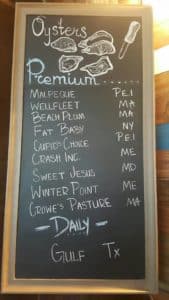 Oysters
Premium......
Malpeque P.E.I
Wellfleet MA
Beach Plum MA
Fat Baby NY
Cupid's Choice P.E.I
Crash Inc. ME
Sweet Jesus MD
Winter Point ME
Crowe's Pasture MA
- Daily -
Gulf Tx